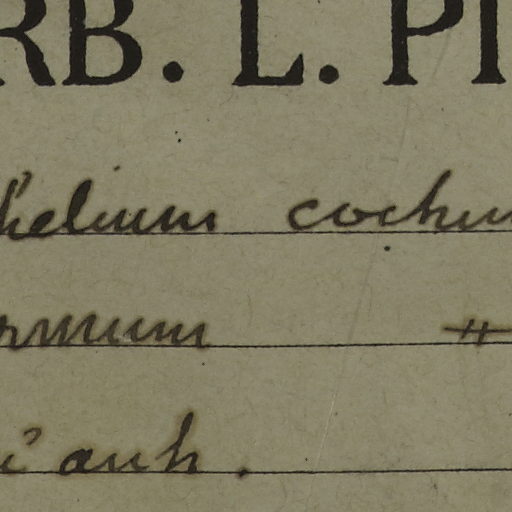 RB. L. PI
helium cochin
rmum #
i anh.